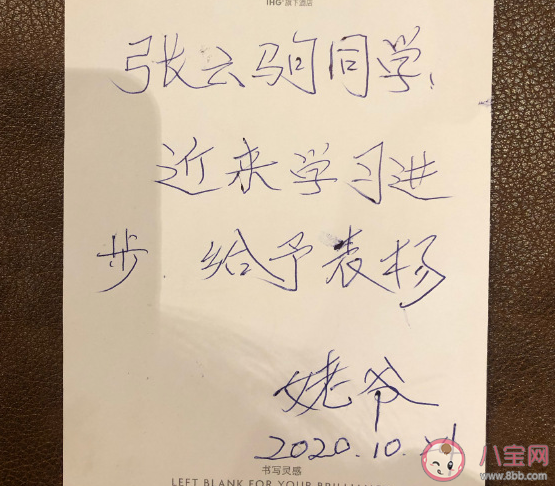 IHG®旗下酒店
张云驹同学、
近来学习进
步 给予表杨
姥爷
2020.10.
书写灵感
LEFT BLANK FOR YOUR
八宝网
www.8bb.com